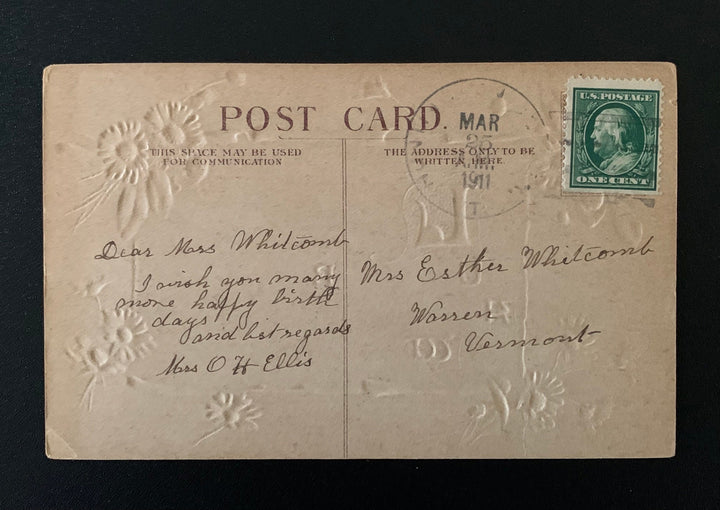 POST CARD.
THIS SPACE MAY BE USED
FOR COMMUNICATION
THE ADDRESS ONLY TO BE
WRITTEN HERE
MAR
1911
U.S. POSTAGE
ONE CENT
Dear Mrs Whitcomb
I wish you many
more happy birth
days
and best regards
Mrs O H Ellis
Mrs Esther Whitcomb
Warren
Vermont